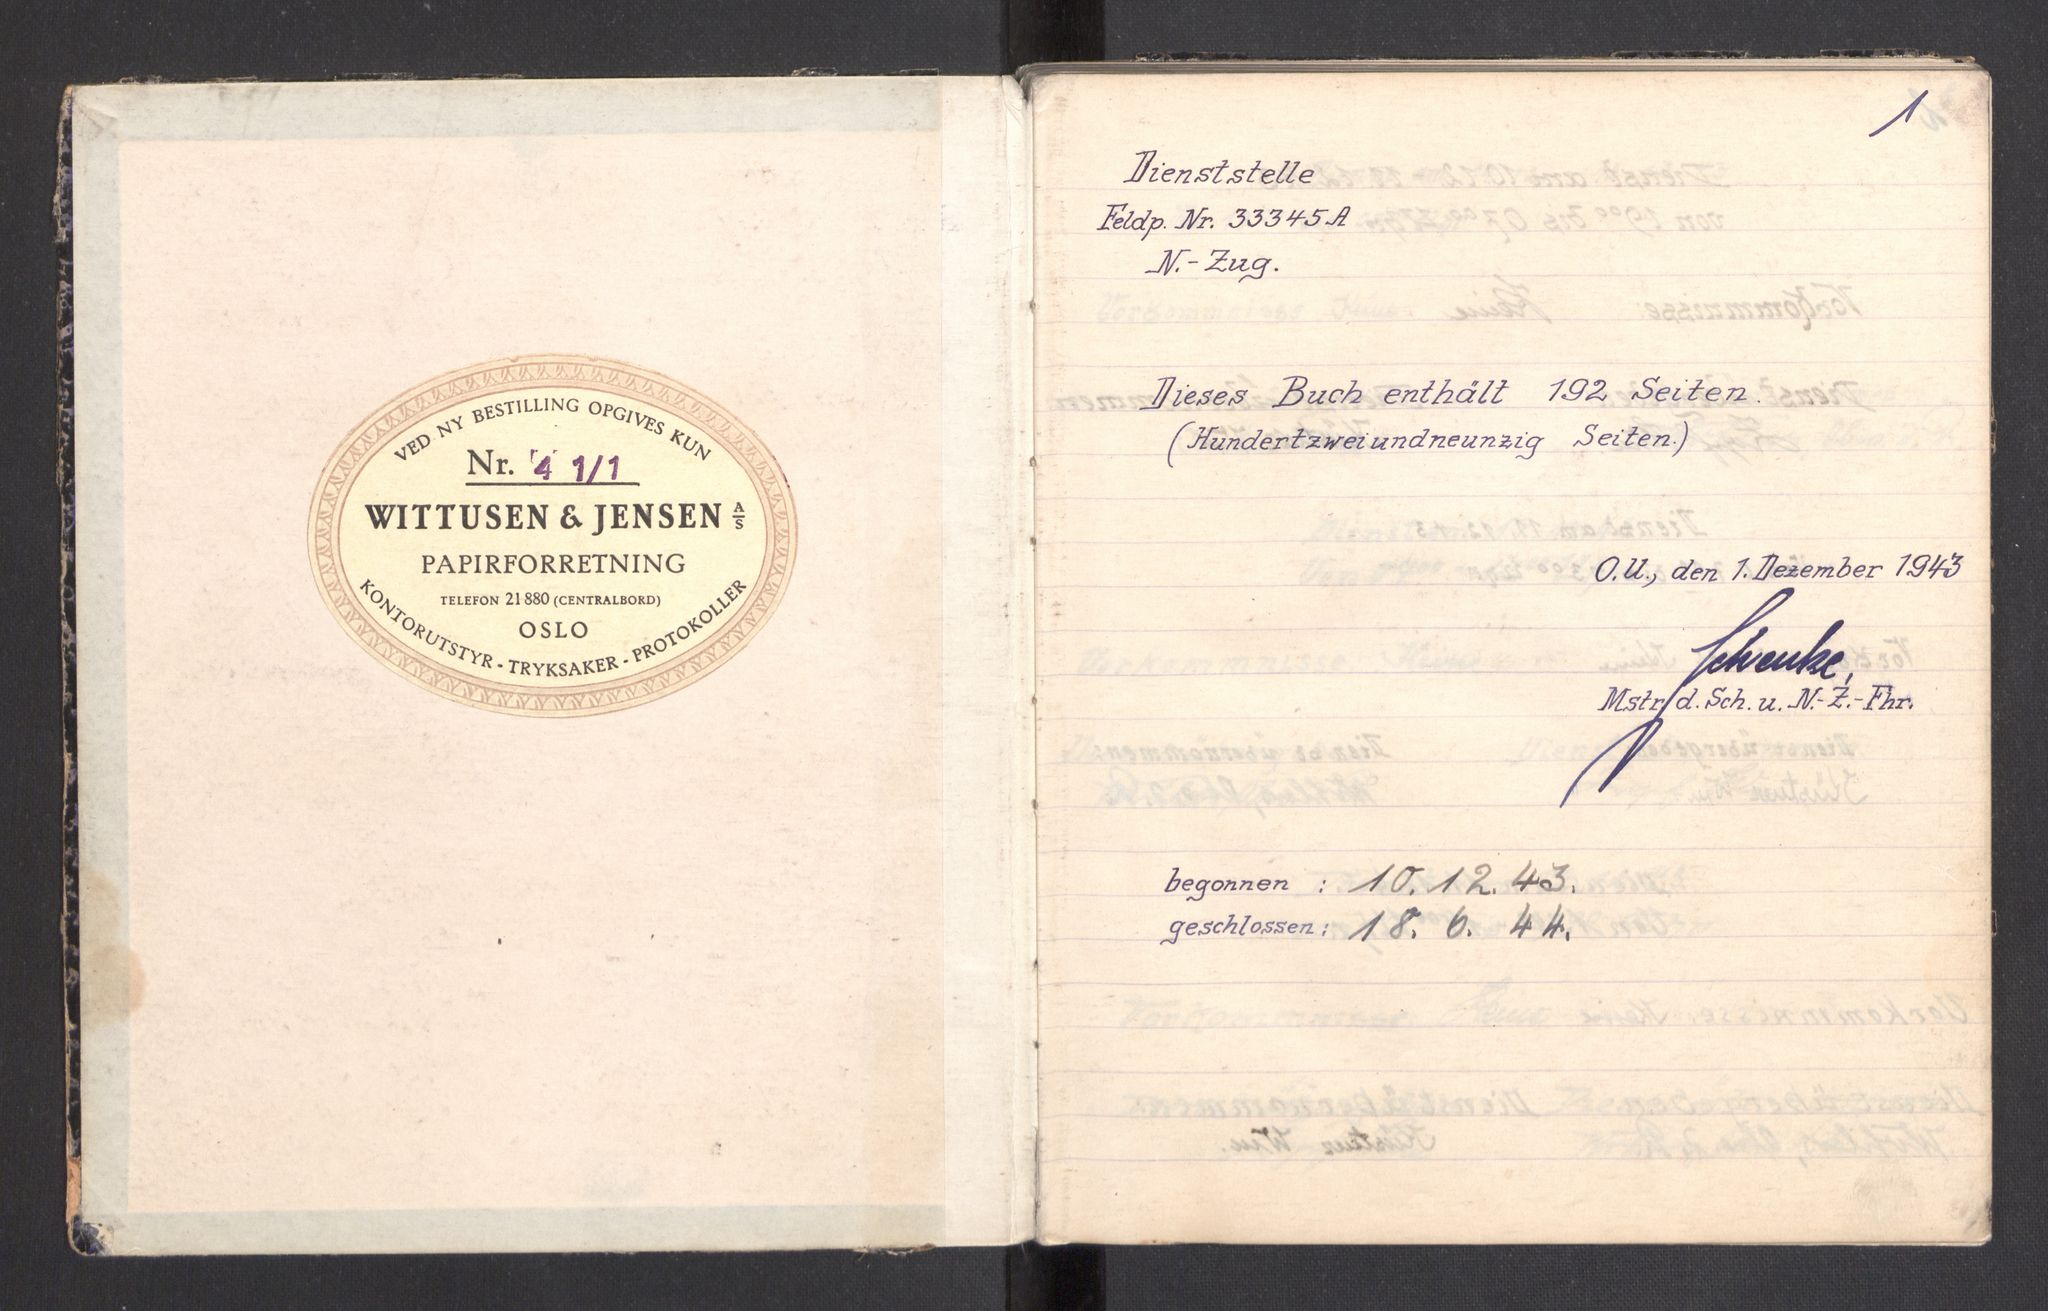 VED NY BESTILLING OPGIVES KUN
Nr. 4 1/1
WITTUSEN & JENSEN A/S
PAPIRFORRETNING
TELEFON 21 880 (CENTRALBORD)
OSLO
KONTORUTSTYR - TRYKSAKER - PROTOKOLLER
1
Dienststelle
Feldp. Nr. 33345A
N.-Zug.
Dieses Buch enthält 192 Seiten.
(Hundertzweiundneunzig Seiten.)
O.U., den 1. Dezember 1943
Schenke,
Mstr. d. Sch. u. N.-Z.-Fhr.
begonnen : 10. 12. 43.
geschlossen: 18. 6. 44.